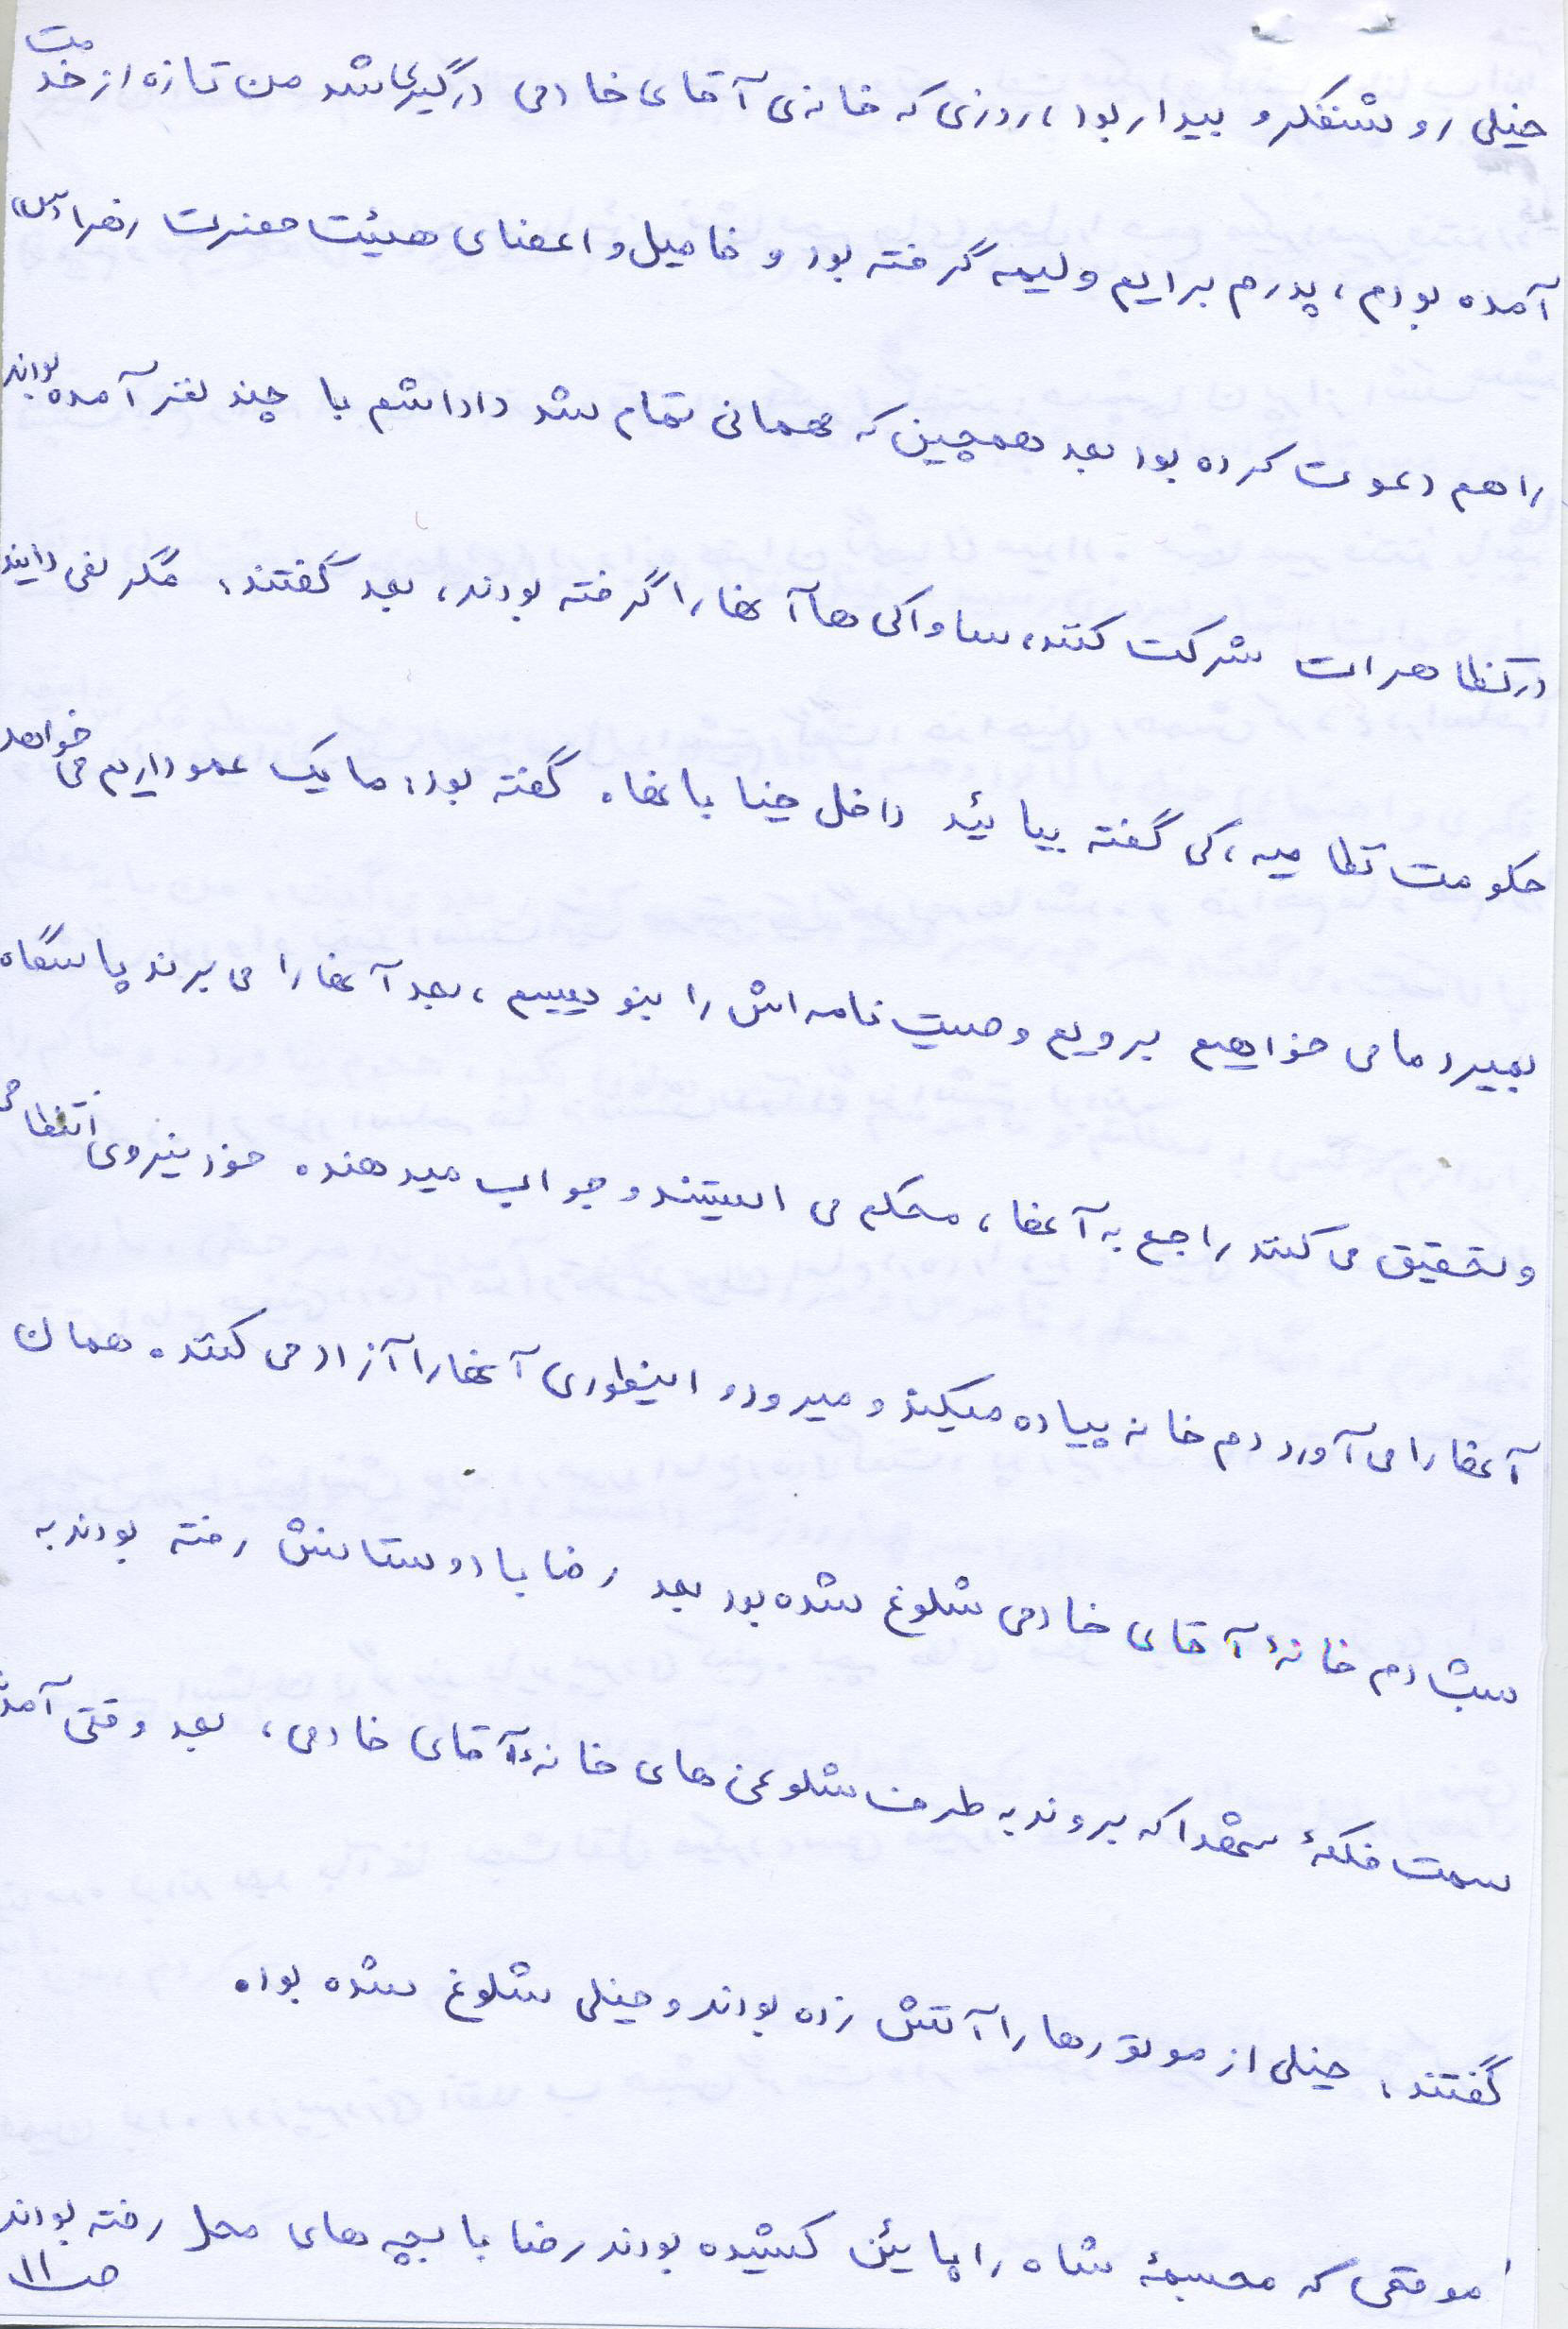 خیلی روشنفکر و بیدار بود، روزی که خانه‌ی آقای خادمی درگیری شد من تازه از خدمت
آمده بودم، پدرم برایم ولیمه گرفته بود و فامیل و اعضای هیئت حضرت زهرا (س)
را هم دعوت کرده بود بعد همچین که مهمانی تمام شد داداشم با چند نفر آمده بودند
در تظاهرات شرکت کنند، ساواکی ها آنها را گرفته بودند، بعد گفتند، مگر نمی دانید
حکومت نظامیه، کی گفته بیائید داخل خیابانها. گفته بود: ما یک عمو داریم می خواهد
بمیرد ما می خواهیم برویم وصیت نامه اش را بنویسیم، بعد آنها را می برند پاسگاه
و تحقیق می کنند راجع به آنها، محکم می ایستند و جواب میدهند. خود نیروی انتظامی
آنها را می آورد دم خانه پیاده میکند و میرود و اینطوری آنها را آزاد می کنند. همان
شب دم خانهٔ آقای خادمی شلوغ شده بود بعد رضا با دوستانش رفته بودند به
سمت فلکهٔ شهدا که بروند به طرف شلوغی های خانهٔ آقای خادمی، بعد وقتی آمدند
گفتند، خیلی از موتورها را آتش زده بودند و خیلی شلوغ شده بود.
موقعی که مجسمهٔ شاه را پایین کشیده بودند رضا با بچه های محل رفته بودند
ص ۱۱